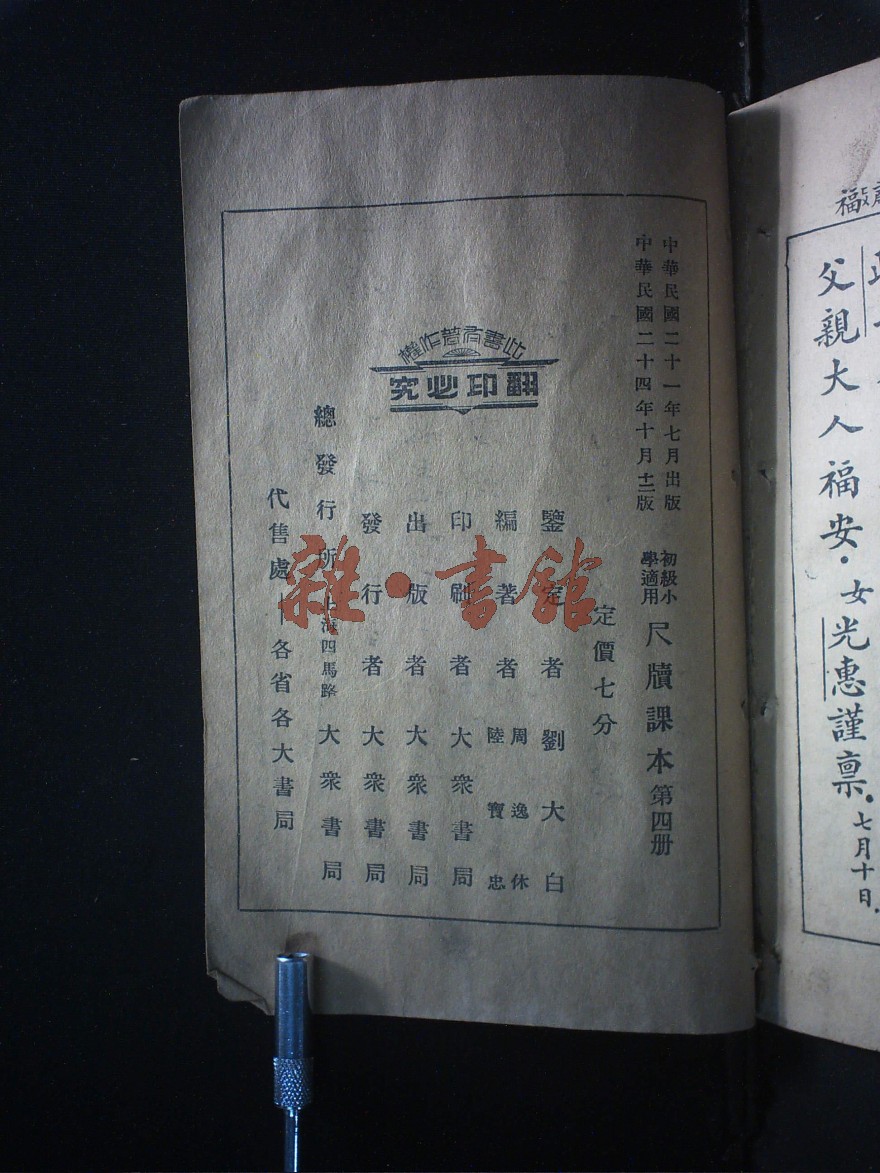 福
父親大人福安．女光惠謹禀．七月十日．
中華民國二十一年七月出版
中華民國二十四年十月十二版
初級小學適用 尺牘課本 第四册
定價七分
鑒定者 劉大白
編著者 周逸休 陸寶忠
印刷者 大衆書局
出版者 大衆書局
發行者 大衆書局
總發行所 上海四馬路 大衆書局
代售處 各省各大書局
此書有著作權
翻印必究
雜·書館